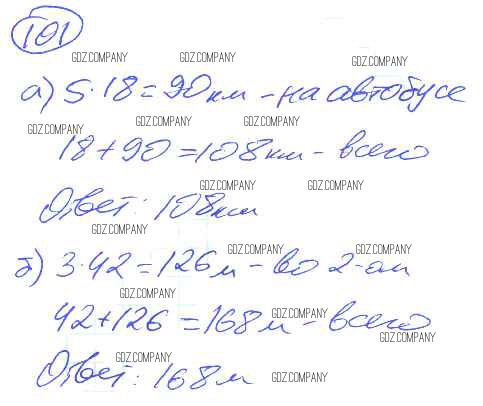 101
GDZ.COMPANY GDZ.COMPANY GDZ.COMPANY
а) 5·18=90км - на автобусе
GDZ.COMPANY GDZ.COMPANY GDZ.COMPANY
18+90=108км - всего
GDZ.COMPANY GDZ.COMPANY
Ответ: 108км
GDZ.COMPANY
GDZ.COMPANY GDZ.COMPANY
б) 3·42=126м - во 2-ом
GDZ.COMPANY
42+126=168м - всего
GDZ.COMPANY GDZ.COMPANY
GDZ.COMPANY
Ответ: 168м
GDZ.COMPANY